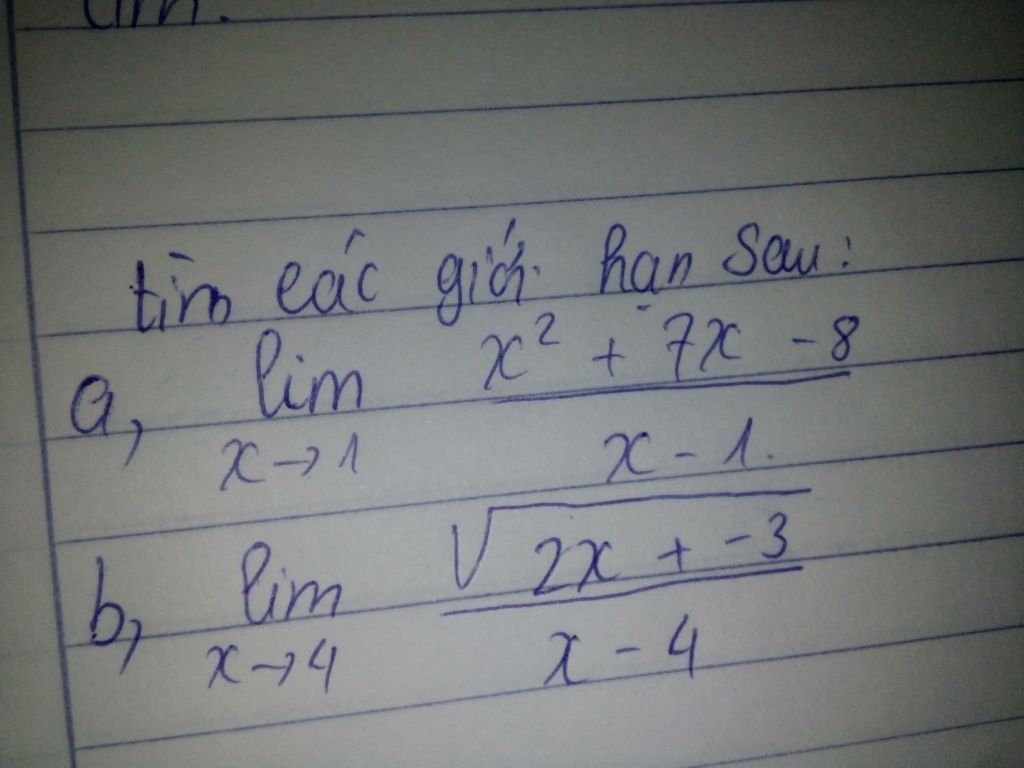 tìm các giới hạn sau:
a, lim x² + 7x - 8
x→1 x - 1.
b, lim √2x + -3
x→4 x - 4